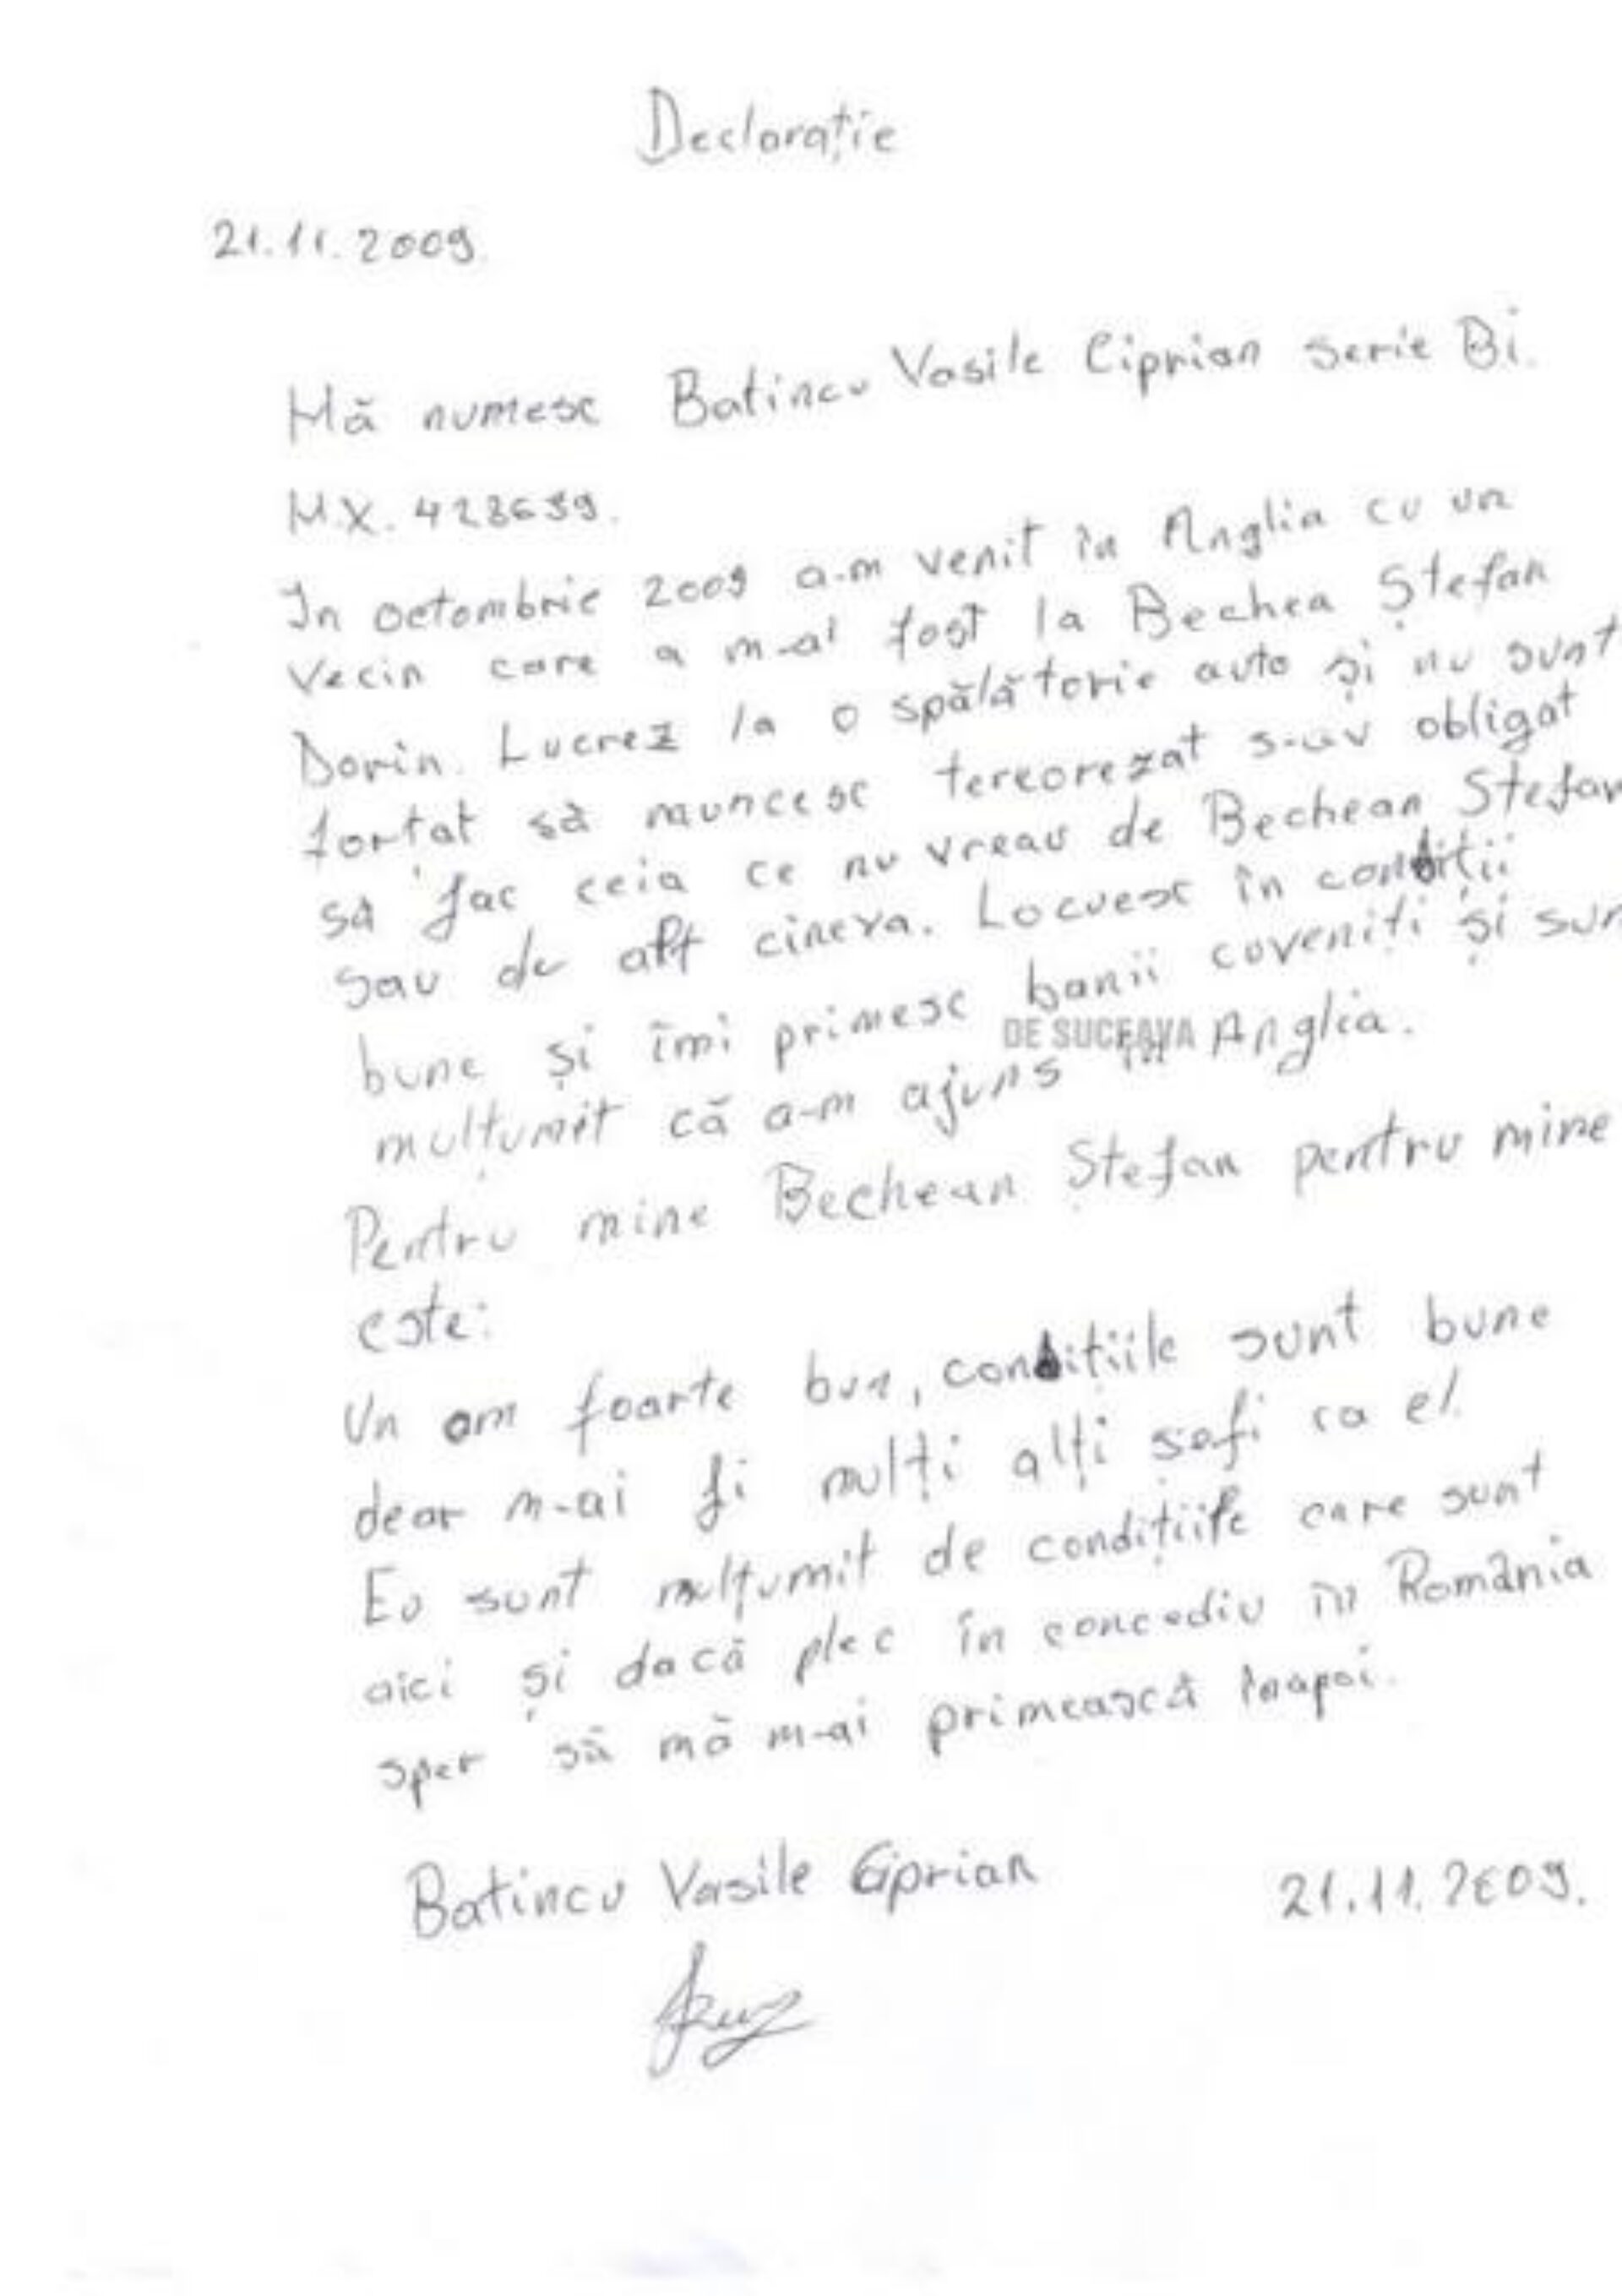 Declarație
21.11.2009.
Mă numesc Batincu Vasile Ciprian serie Bi.
MX. 428639.
In octombrie 2009 a-m venit în Anglia cu un
vecin care a m-ai fost la Bechea Ștefan
Dorin. Lucrez la o spălătorie auto și nu sunt
fortat să muncesc tereorezat s-au obligat
să fac ceia ce nu vreau de Bechean Stefan
sau de alt cineva. Locuesc în condiții
bune și îmi primesc banii coveniți și sun
DE SUCEAVA
mulțumit că a-m ajuns în Anglia.
Pentru mine Bechean Ștefan pentru mine
este:
Un om foarte bun, condițiile sunt bune
dear m-ai fi mulți alți sefi ca el.
Eu sunt mulțumit de condițiile care sunt
aici și dacă plec în concediu în România
sper să mă m-ai primească înapoi.
Batincu Vasile Ciprian 21.11.2009.